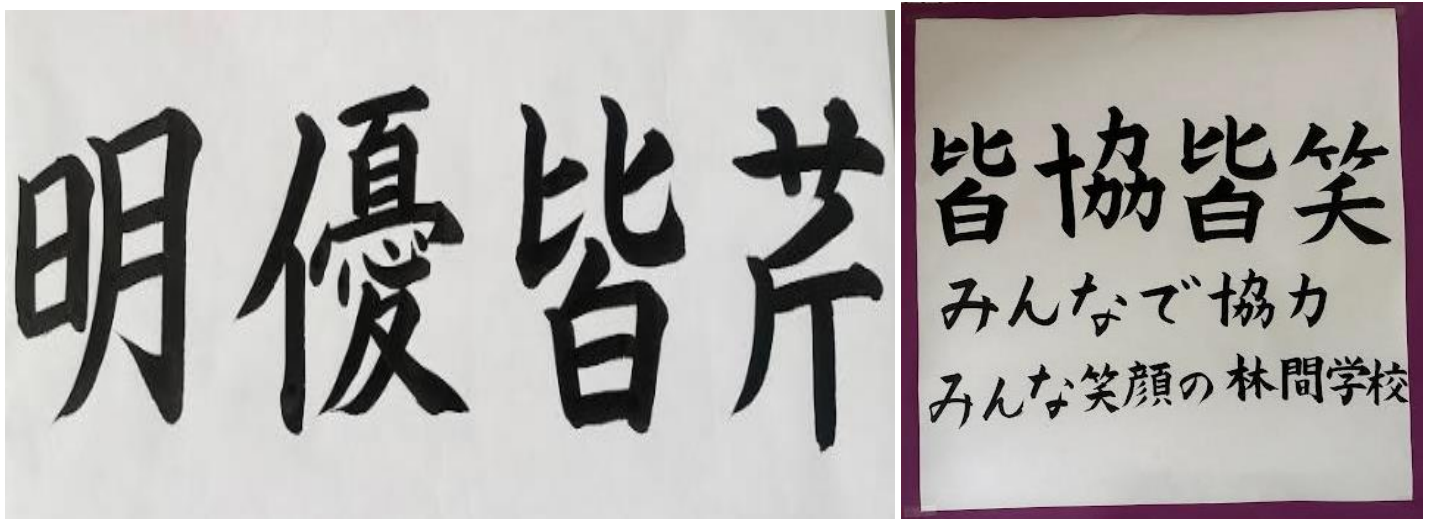 明優皆芹
皆協皆笑
みんなで協力
みんな笑顔の林間学校